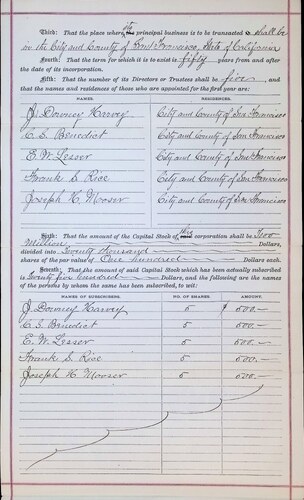 Third: That the place where its principal business is to be transacted is shall be
in the City and County of San Francisco, State of California
Fourth: That the term for which it is to exist is fifty years from and after
the date of its incorporation.
Fifth: That the number of its Directors or Trustees shall be five and
that the names and residences of those who are appointed for the first year are:
NAMES. RESIDENCES.
J. Downey Harvey City and County of San Francisco
C. S. Benedict City and County of San Francisco
E. W. Lesser City and County of San Francisco
Frank S. Rice City and County of San Francisco
Joseph H. Mooser City and County of San Francisco
Sixth: That the amount of the Capital Stock of this corporation shall be Two
Million Dollars,
divided into Twenty thousand
shares of the par value of One hundred Dollars each.
Seventh: That the amount of said Capital Stock which has been actually subscribed
is Twenty five hundred Dollars, and the following are the names
of the persons by whom the same has been subscribed, to wit:
NAMES OF SUBSCRIBERS. NO. OF SHARES. AMOUNT.
J. Downey Harvey 5 $ 500.—
C. S. Benedict 5 500.—
E. W. Lesser 5 500.—
Frank S. Rice 5 500.—
Joseph H. Mooser 5 500.—